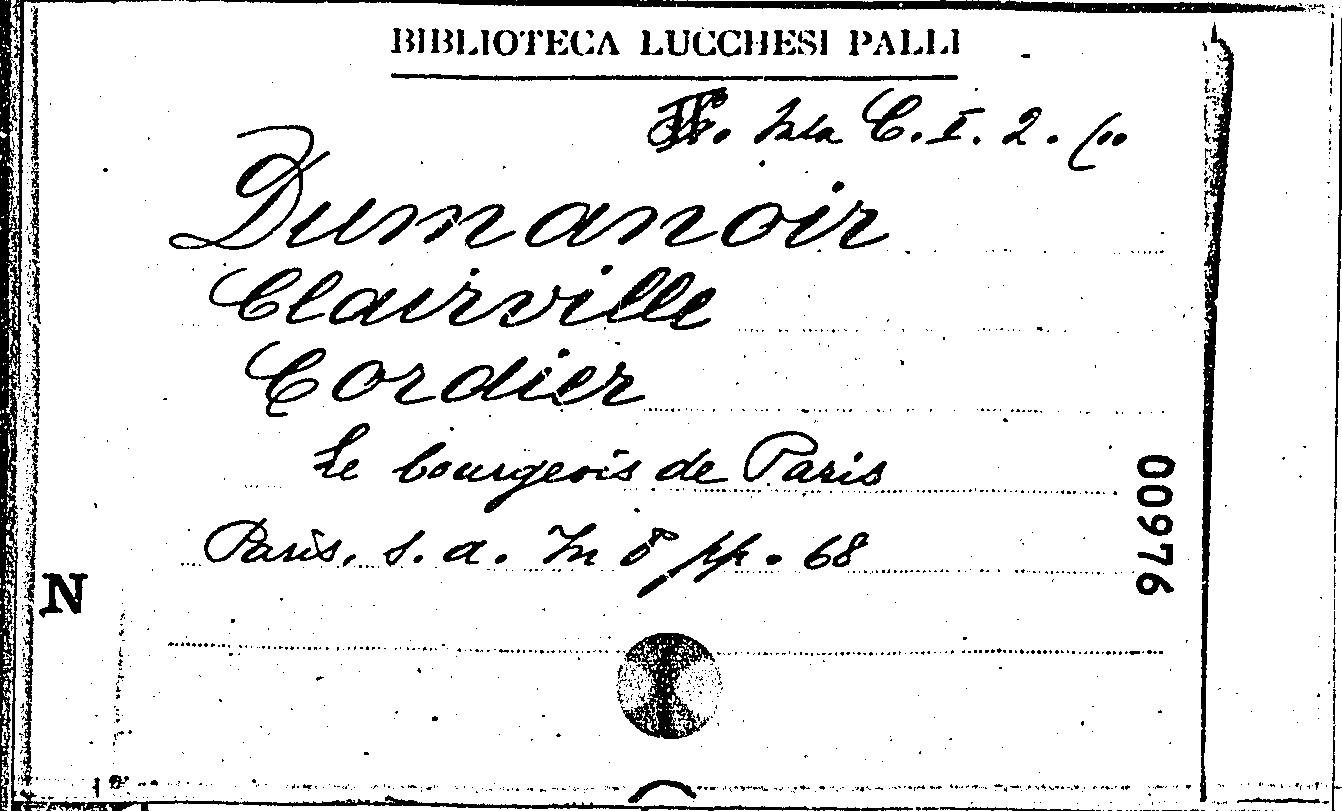 BIBLIOTECA LUCCHESI PALLI
C. I. 2.
Dumanoir
Clairville
Cordier
Le bourgeois de Paris
Paris, s. a. In 8° pp. 68
00976
N